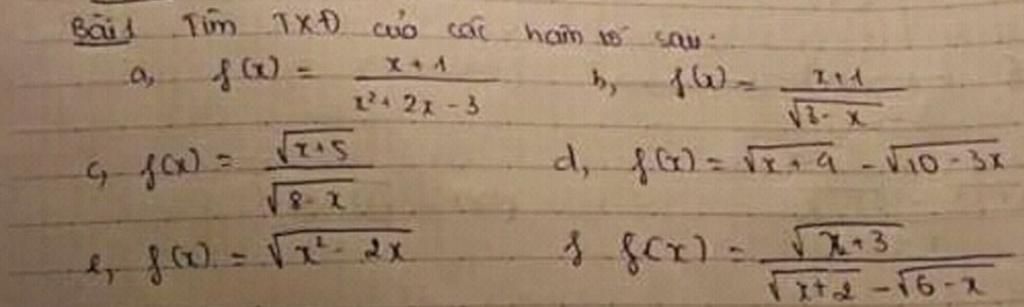 Bài 1 Tìm TXĐ của các hàm số sau:
a, f(x) = \frac{x+1}{x²+2x-3} b, f(x) = \frac{x+1}{\sqrt{3-x}}
c, f(x) = \frac{\sqrt{x+5}}{\sqrt{8-x}} d, f(x) = \sqrt{x+9} - \sqrt{10-3x}
e, f(x) = \sqrt{x²-2x} f f(x) = \frac{\sqrt{x+3}}{\sqrt{x+2}-\sqrt{6-x}}